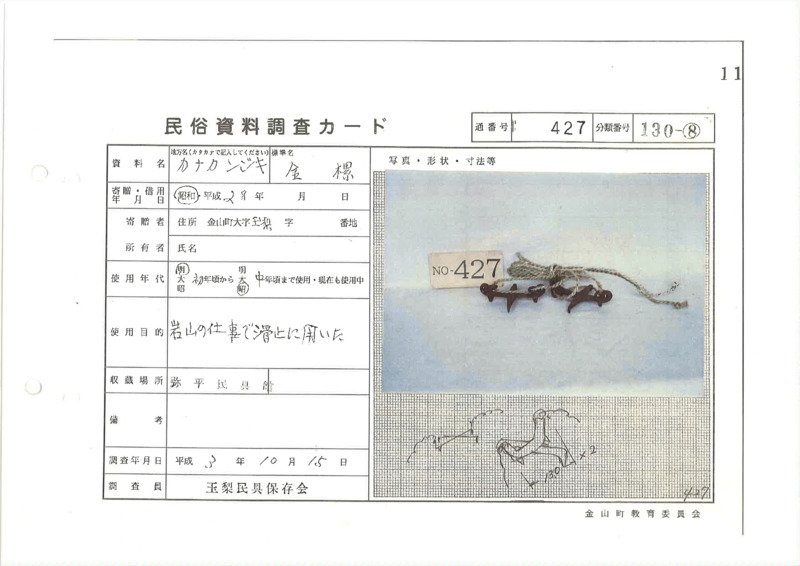 11
民俗資料調査カード
通番号 427 分類番号 130-⑧
資料名 地方名(カタカナで記入してください) カナカンジキ 標準名 金樏
寄贈・借用年月日 昭和・平成 28年 月 日
寄贈者 住所 金山町大字玉梨 字 番地
所有者 氏名
使用年代 明大昭 初年頃から 明大昭 中年頃まで使用・現在も使用中
使用目的 岩山の仕事で滑止に用いた
収蔵場所 弥平民具館
備考
調査年月日 平成 3年 10月 15日
調査員 玉梨民具保存会
写真・形状・寸法等
NO-427
13.0
×2
427
金山町教育委員会